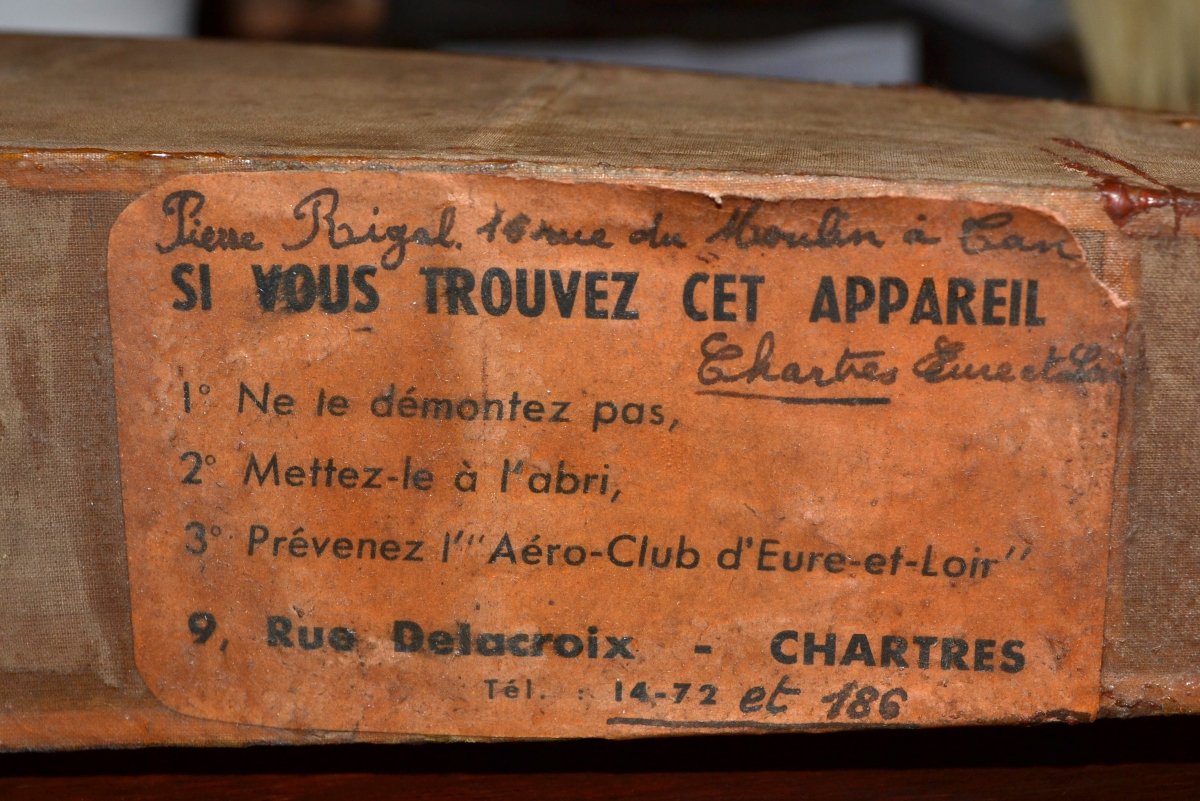 Pierre Rigal. 16 rue du Moulin à Can
SI VOUS TROUVEZ CET APPAREIL
Chartres Eure et
1° Ne le démontez pas,
2° Mettez-le à l'abri,
3° Prévenez l'"Aéro-Club d'Eure-et-Loir"
9, Rue Delacroix - CHARTRES
Tél. : 14-72 et 186